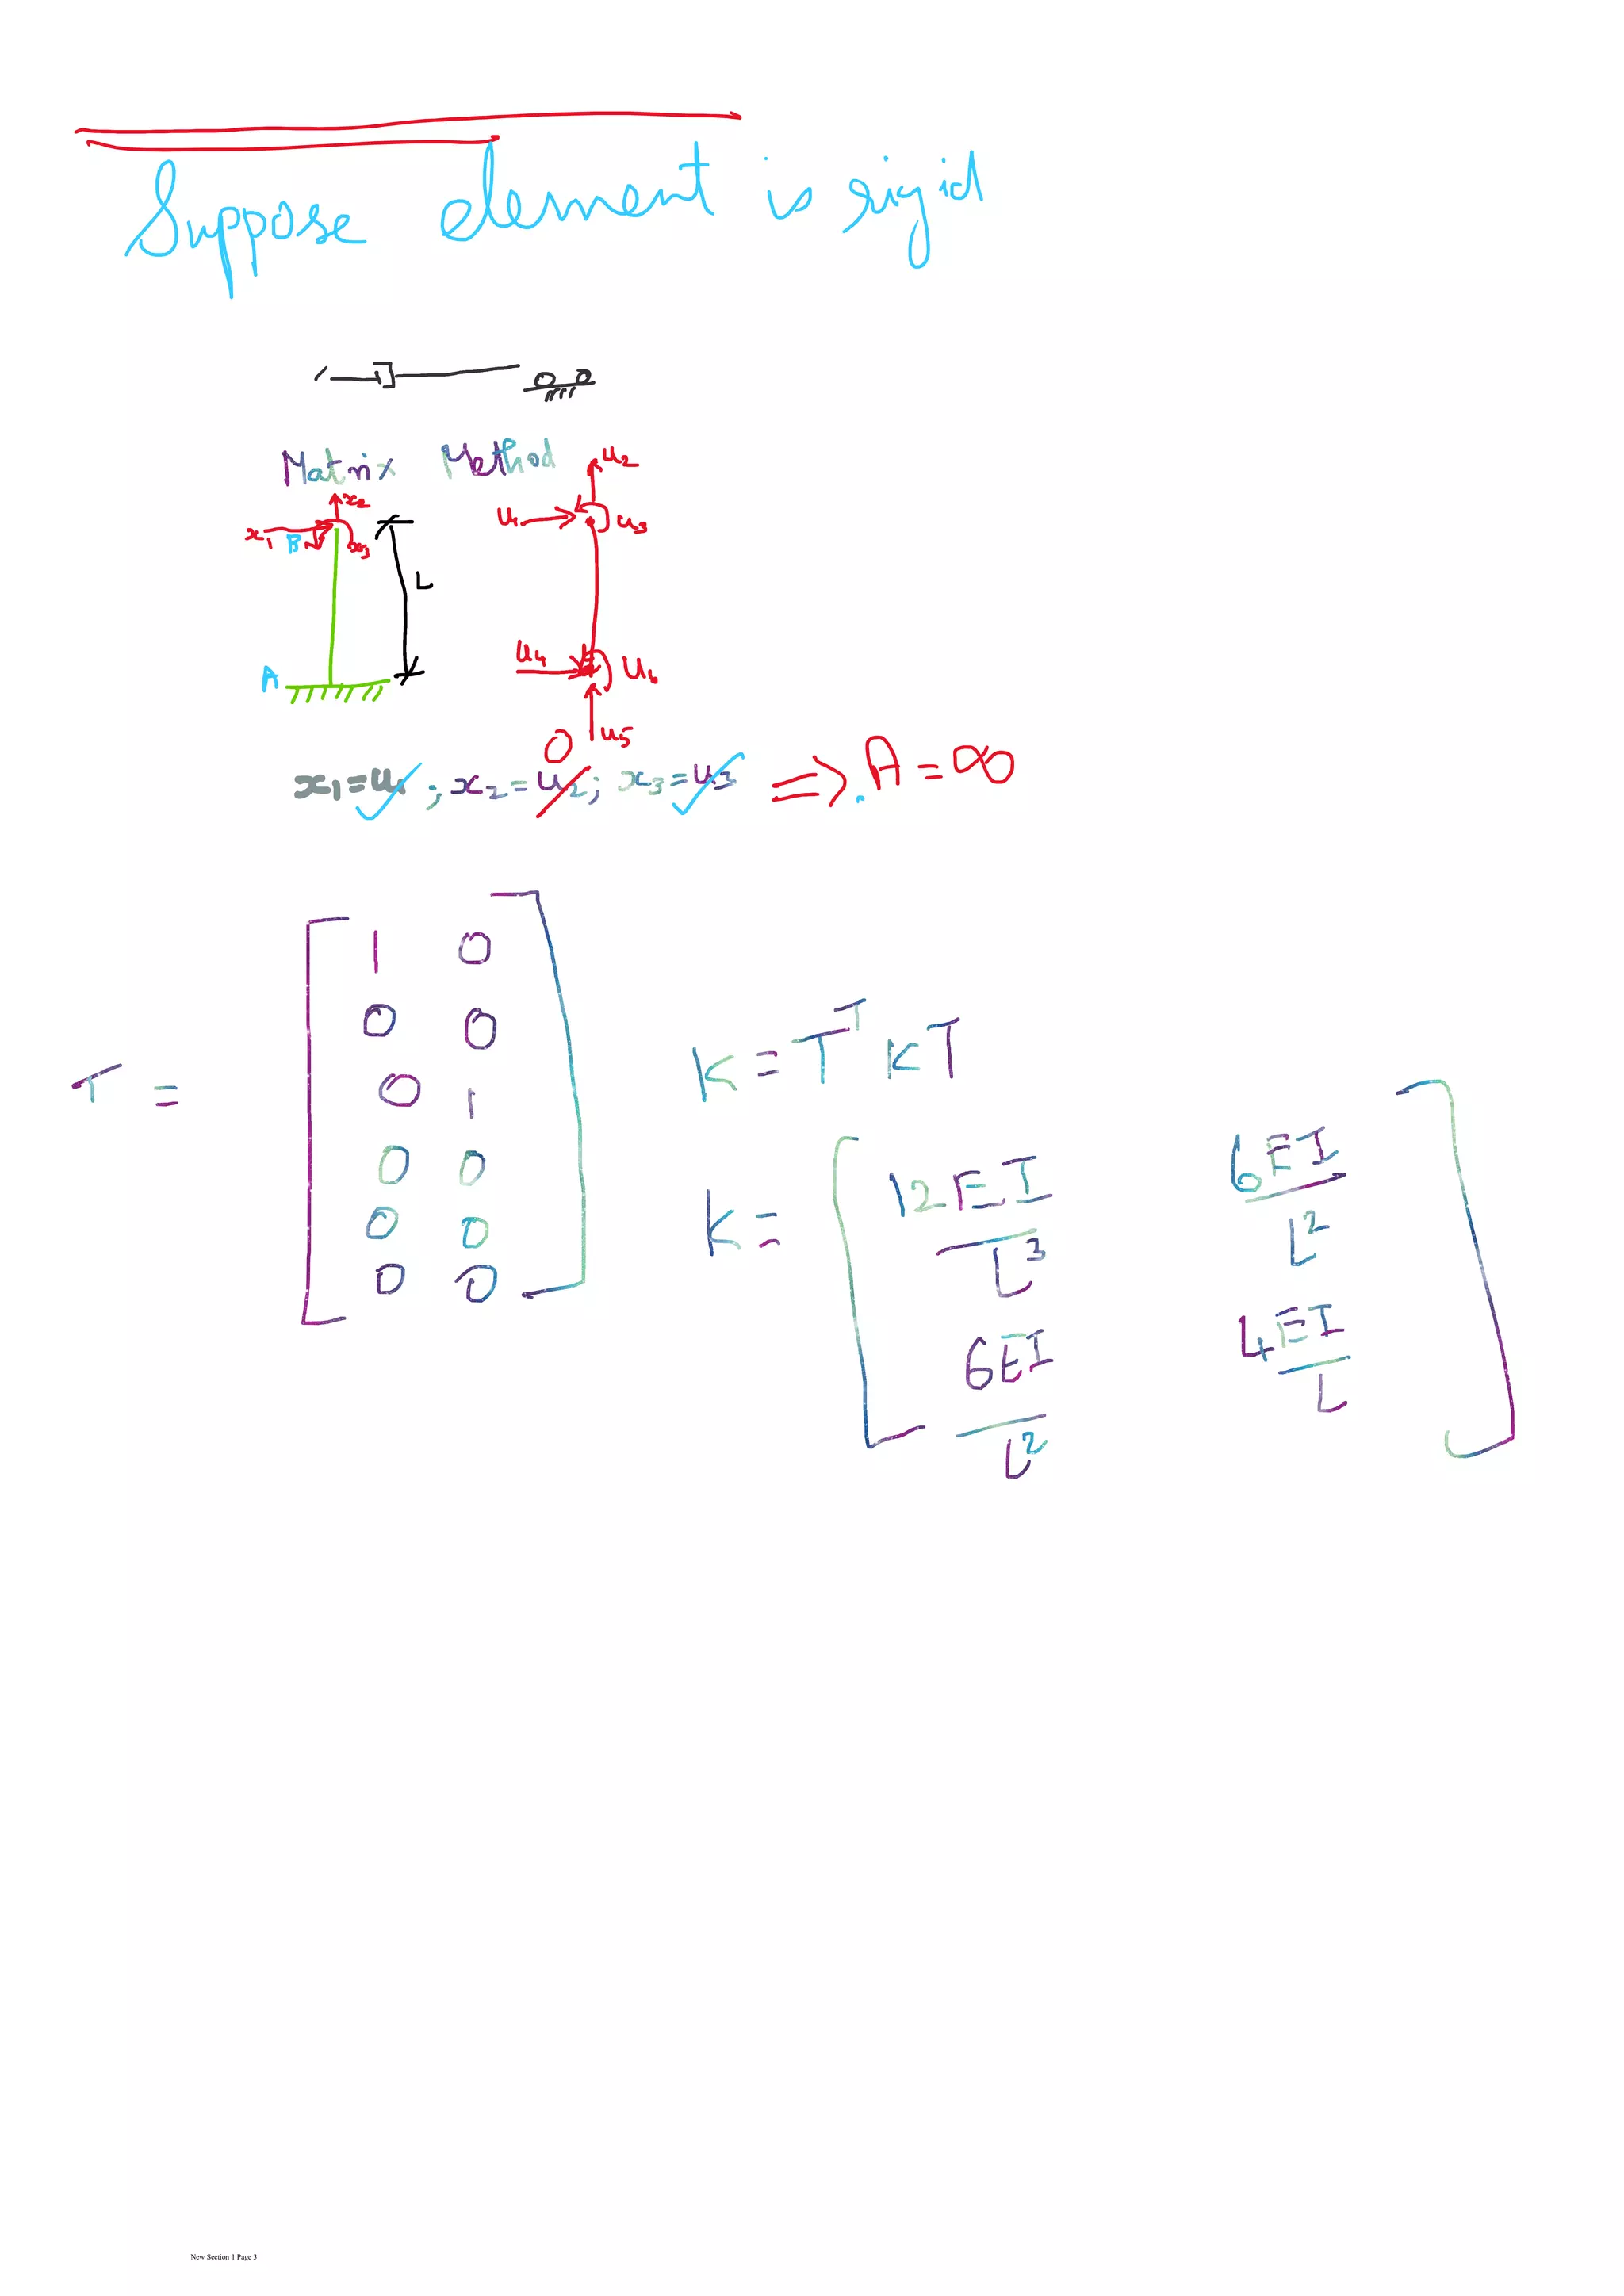 Suppose element is rigid
Matrix Method
x2
x1
B
x3
L
A
u2
u1
u3
u4
u6
u5
0
x1=u1; x2=u2; x3=u3 ⇒ A=∞
T =
1 0
0 0
0 1
0 0
0 0
0 0
K = T^T K T
K =
12EI/L^3 6EI/L^2
6EI/L^2 4EI/L
New Section 1 Page 3